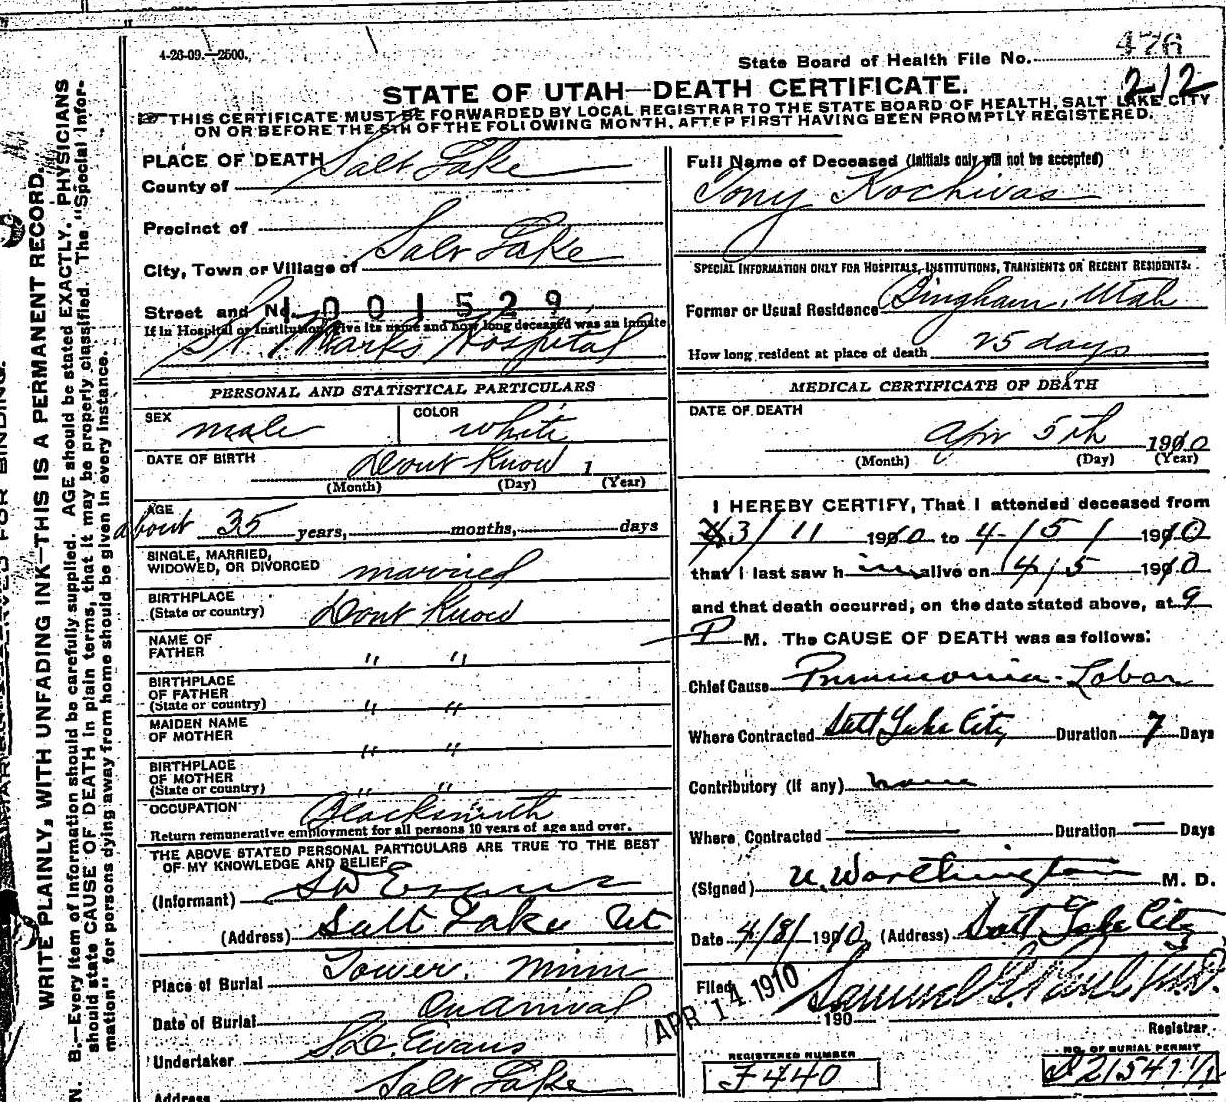 4-26-09.—2500.
State Board of Health File No. 476
212
STATE OF UTAH—DEATH CERTIFICATE.
THIS CERTIFICATE MUST BE FORWARDED BY LOCAL REGISTRAR TO THE STATE BOARD OF HEALTH, SALT LAKE CITY
ON OR BEFORE THE 5TH OF THE FOLLOWING MONTH, AFTER FIRST HAVING BEEN PROMPTLY REGISTERED.
PLACE OF DEATH
County of Salt Lake
Precinct of
City, Town or Village of Salt Lake
Street and No. 1001529
If in Hospital or Institution, give its name and how long deceased was an inmate
St. Marks Hospital
PERSONAL AND STATISTICAL PARTICULARS
SEX male COLOR white
DATE OF BIRTH Dont Know 1
(Month) (Day) (Year)
AGE
about 35 years, months, days
SINGLE, MARRIED,
WIDOWED, OR DIVORCED married
BIRTHPLACE
(State or country) Dont Know
NAME OF
FATHER " "
BIRTHPLACE
OF FATHER
(State or country) " "
MAIDEN NAME
OF MOTHER " "
BIRTHPLACE
OF MOTHER
(State or country) " "
OCCUPATION Blacksmith
Return remunerative employment for all persons 10 years of age and over.
THE ABOVE STATED PERSONAL PARTICULARS ARE TRUE TO THE BEST
OF MY KNOWLEDGE AND BELIEF
(Informant) SD Evans
(Address) Salt Lake Ut
Place of Burial Tower, Minn
Date of Burial On Arrival
Undertaker S.D. Evans
Address Salt Lake
Full Name of Deceased (Initials only will not be accepted)
Tony Kochivas
SPECIAL INFORMATION ONLY FOR HOSPITALS, INSTITUTIONS, TRANSIENTS OR RECENT RESIDENTS.
Former or Usual Residence Bingham, Utah
How long resident at place of death 25 days
MEDICAL CERTIFICATE OF DEATH
DATE OF DEATH
Apr 5th 1910
(Month) (Day) (Year)
I HEREBY CERTIFY, That I attended deceased from
3/11 1910 to 4/5/ 1910
that I last saw him alive on 4/5 1910
and that death occurred, on the date stated above, at 9
P M. The CAUSE OF DEATH was as follows:
Chief Cause Pneumonia-Lobar
Where Contracted Salt Lake City Duration 7 Days
Contributory (if any) none
Where Contracted — Duration — Days
(Signed) U. Worthington M. D.
Date 4/8/1910 (Address) Salt Lake City
Filed APR 14 1910 190 Samuel G. Paul M.D.
Registrar
REGISTERED NUMBER
F440
NO. OF BURIAL PERMIT
WRITE PLAINLY, WITH UNFADING INK—THIS IS A PERMANENT RECORD.
B.—Every item of information should be carefully supplied. AGE should be stated EXACTLY. PHYSICIANS
should state CAUSE OF DEATH in plain terms, that it may be properly classified. The "Special Infor-
mation" for persons dying away from home should be given in every instance.